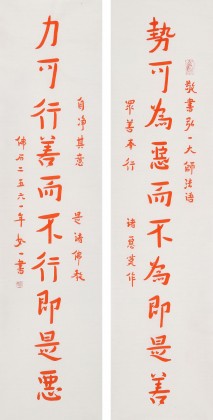 敬書弘一大師法語
勢可為惡而不為即是善
眾善奉行
諸惡莫作
自净其意
是諸佛教
力可行善而不行即是惡
二五六一年
一書